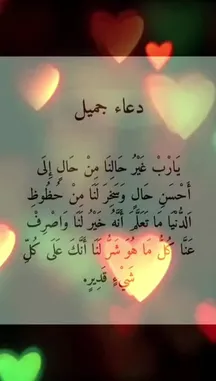 دعاء جميل
يَارَبْ غَيْرُ حَالِنَا مِنْ حَالٍ إِلَى
أَحْسَنِ حَالٍ وَسَخِرَ لَنَا مِنْ حُظُوظِ
الَدُّنْيَا مَا تَعَلَّمَ أَنَّهُ خَيْرٌ لَنَا وَاصْرِفْ
عَنَّا كُلُّ مَا هُوَ شَرٌّ لَنَا أَنَّكَ عَلَى كُلِّ
شَيْءٍ قَدِيرٍ.